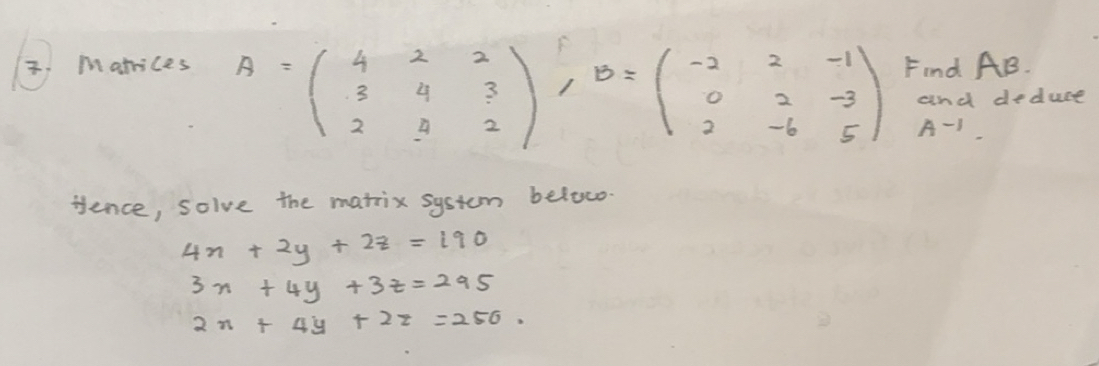 7. Matrices A = ( 4 2 2 ) , B = ( -2 2 -1 ) Find AB.
3 4 3 0 2 -3 and deduce
2 4 2 2 -6 5 A-1.
Hence, solve the matrix system below.
4x + 2y + 2z = 190
3x + 4y + 3z = 295
2x + 4y + 2z = 250.